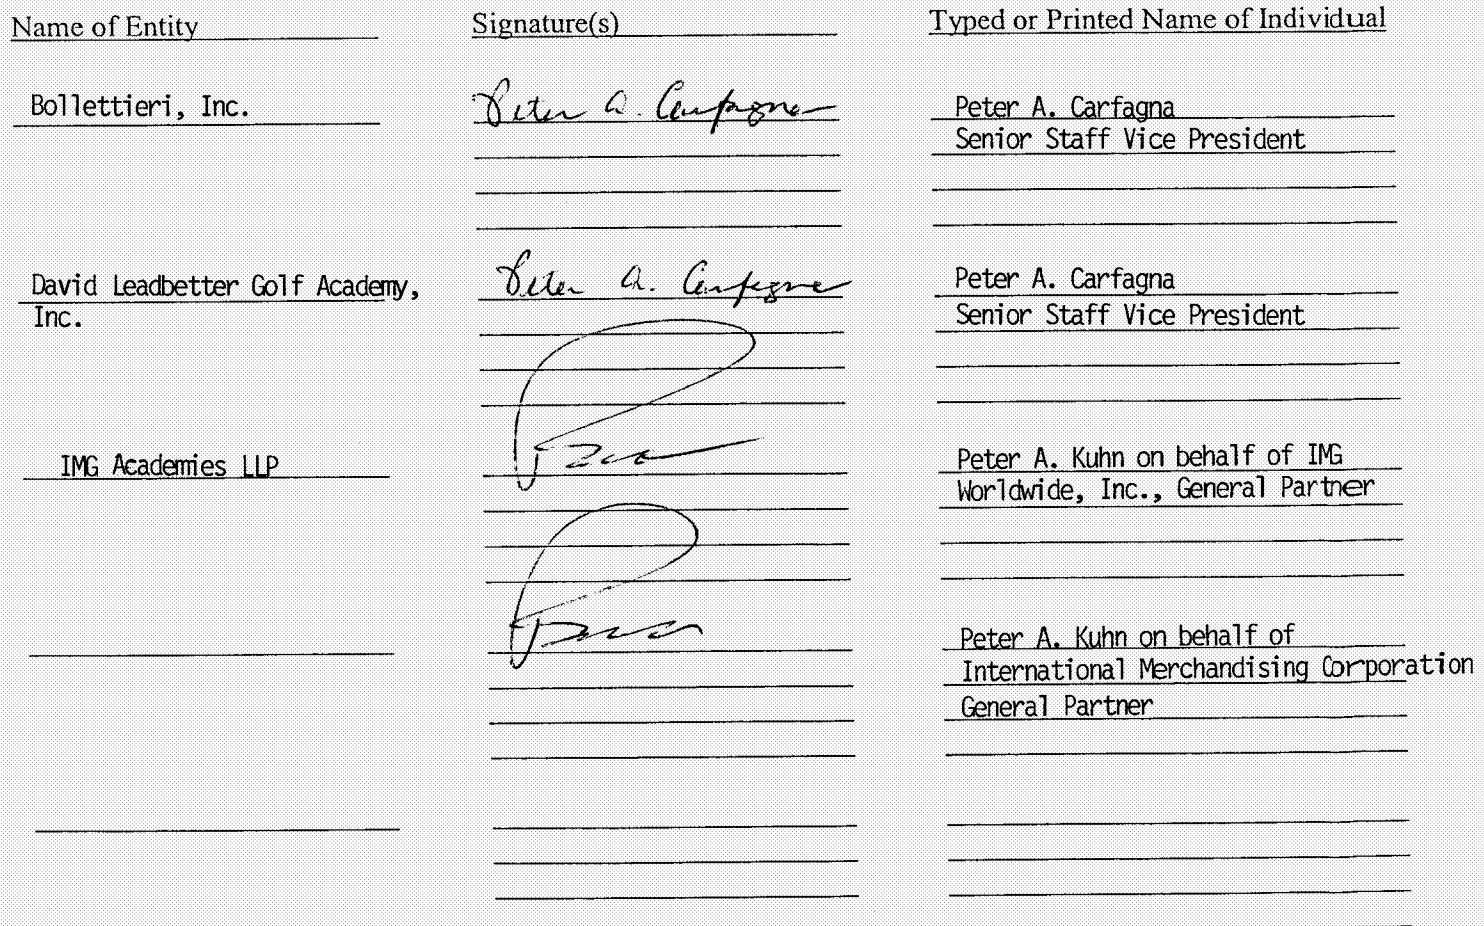 Name of Entity Signature(s) Typed or Printed Name of Individual
Bollettieri, Inc. Peter A. Carfagna Peter A. Carfagna
Senior Staff Vice President
David Leadbetter Golf Academy, Peter A. Carfagna Peter A. Carfagna
Inc. Senior Staff Vice President
IMG Academies LLP Peter A. Kuhn on behalf of IMG
Worldwide, Inc., General Partner
Peter A. Kuhn on behalf of
International Merchandising Corporation
General Partner